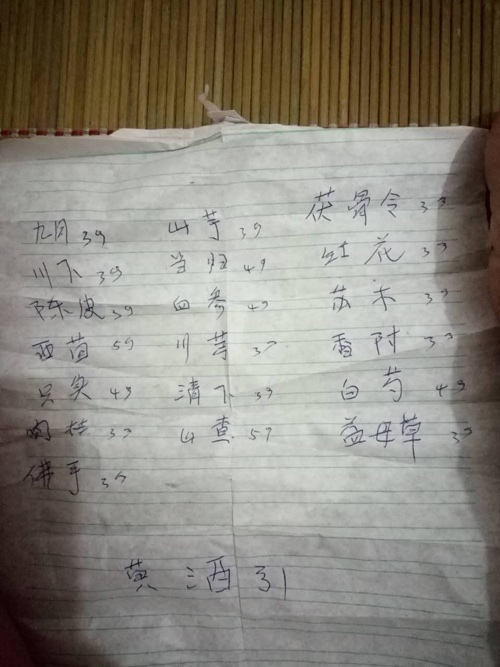 九月 3g 山芋 3g 茯骨令 3g
川下 3g 当归 4g 红花 3g
陈皮 3g 白参 4g 苏木 3g
西茴 5g 川芎 3g 香附 3g
只实 4g 清下 3g 白芍 4g
肉桂 3g 山查 5g 益母草 3g
佛手 3g
黄酒引